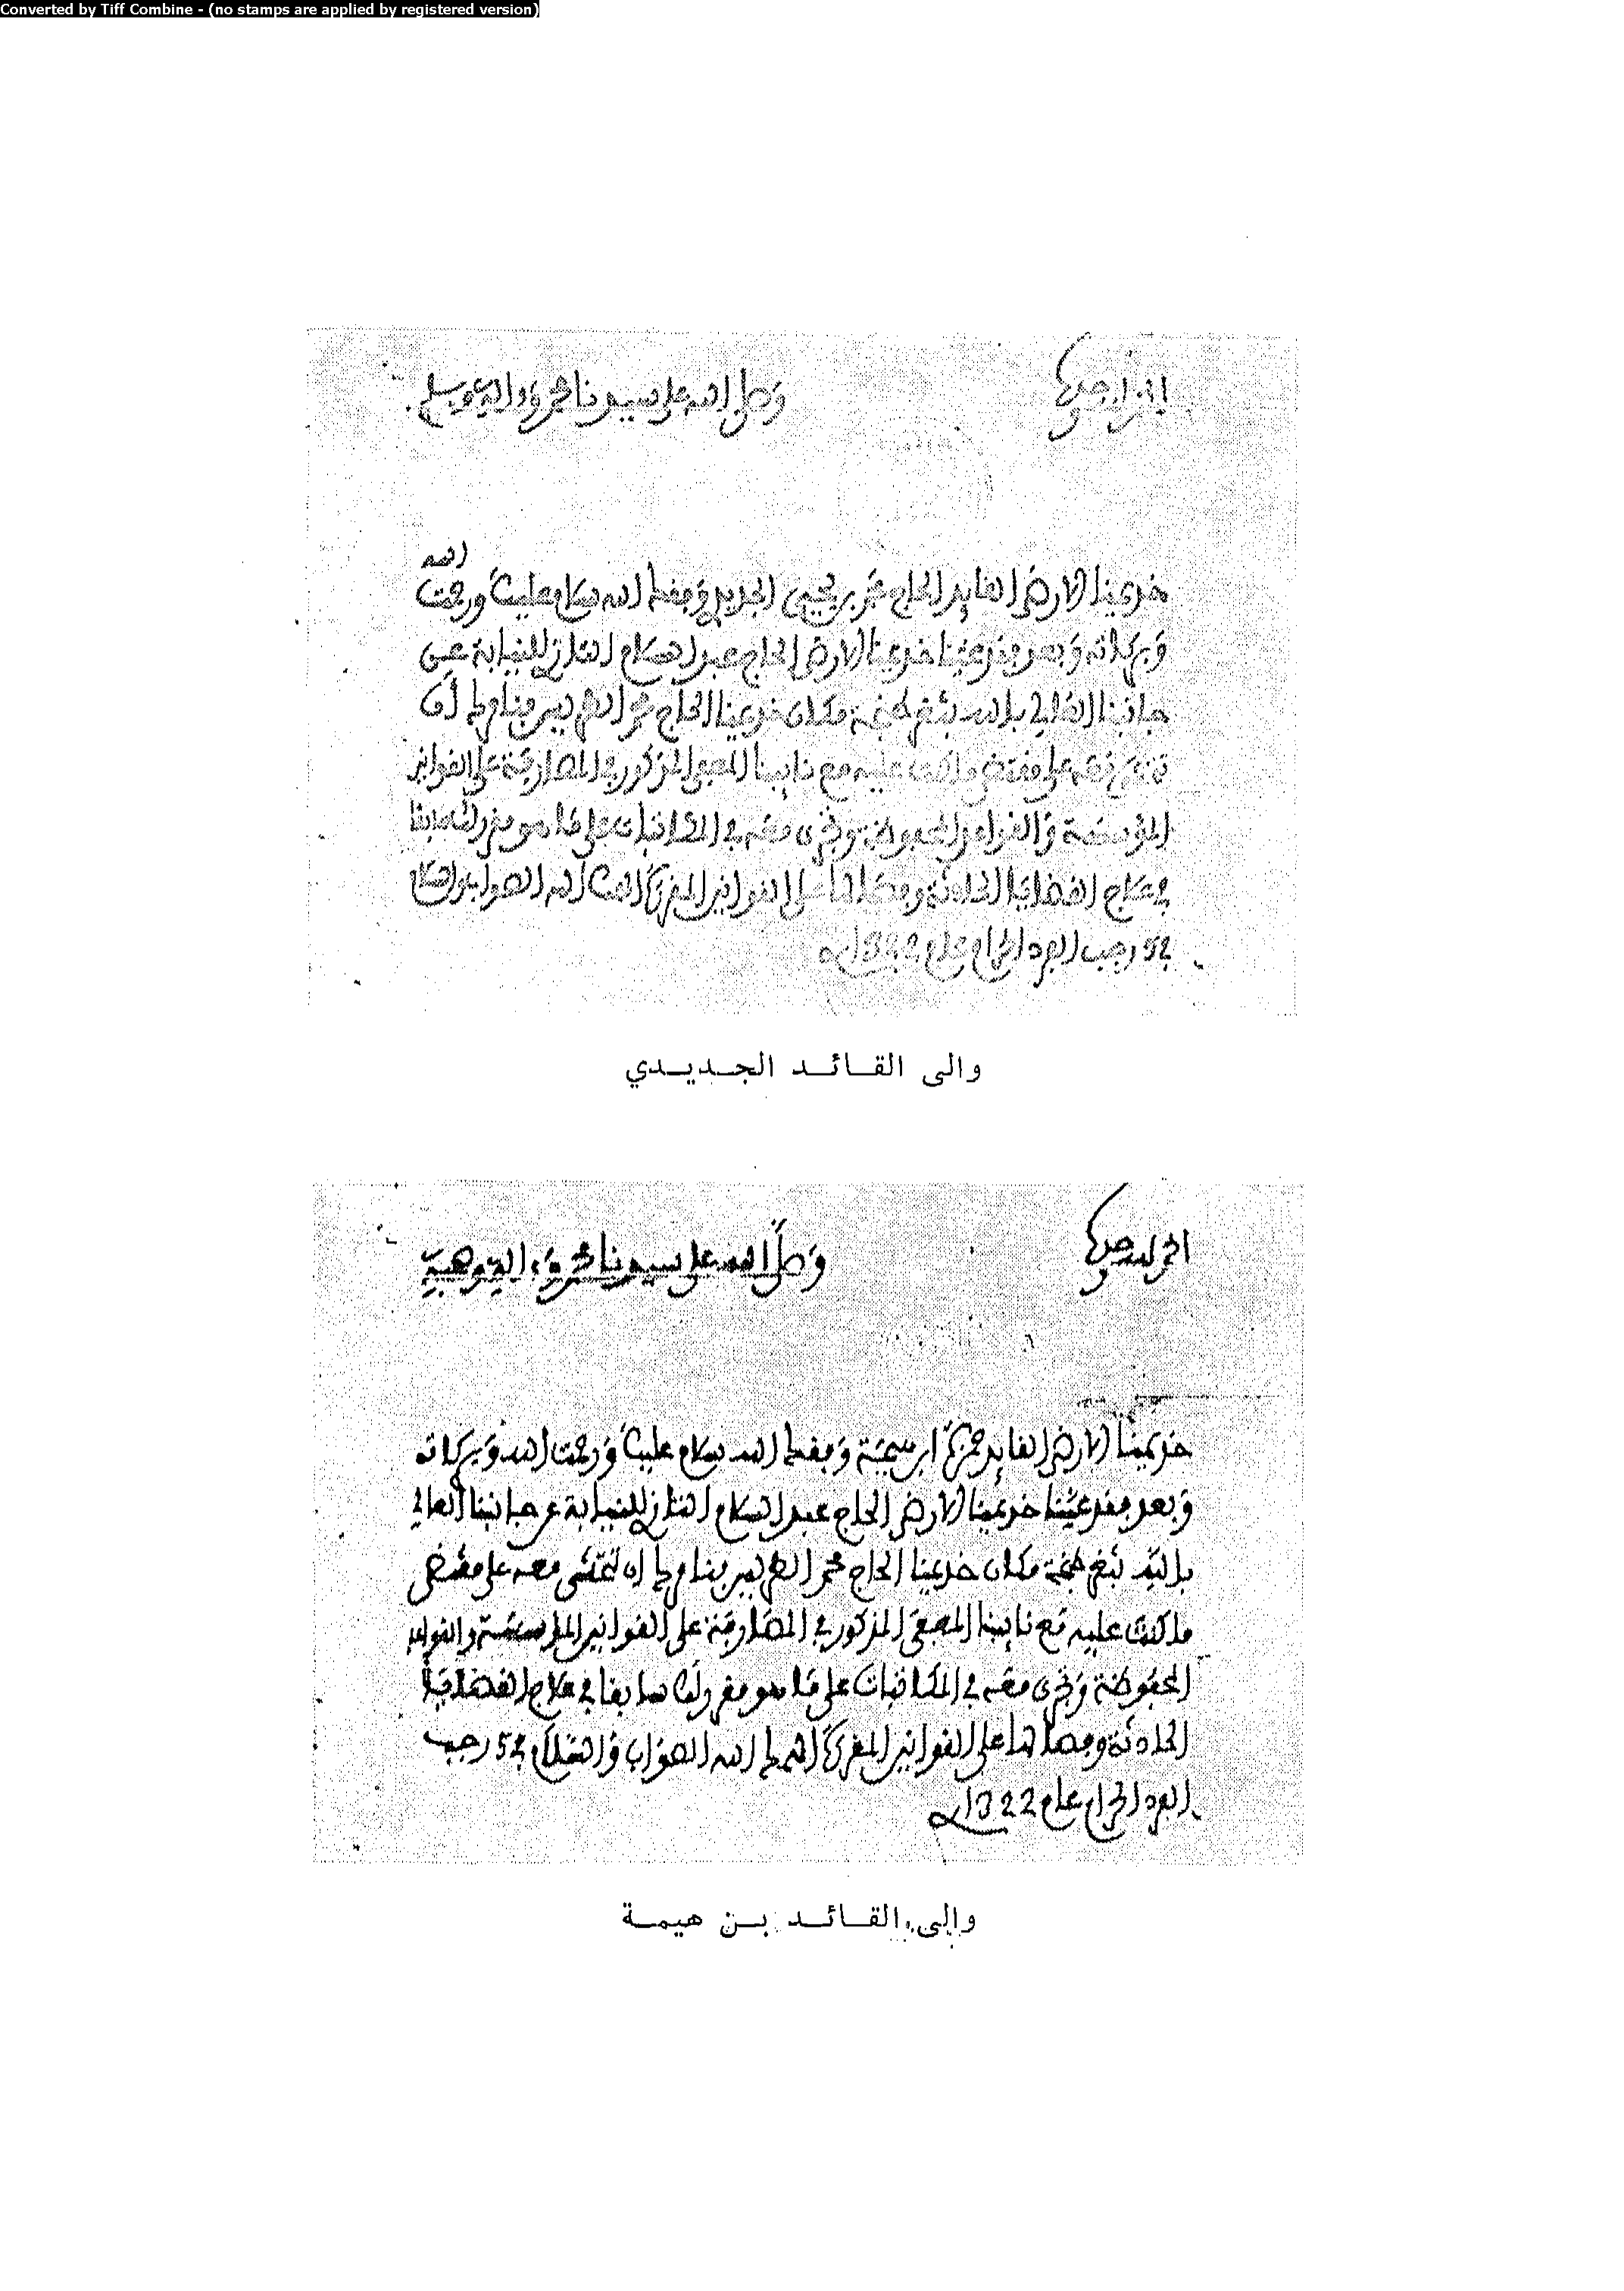 Converted by Tiff Combine - (no stamps are applied by registered version)
الحمد لله وحده
وصلى الله على سيدنا محمد وءاله وصحبه وسلم
الله
خديمنا الارضى القايد الحاج محمد بن يحيى الجديدي وفقك الله سلام عليك ورحمت
وبركاته وبعد فقد عينا خديمنا الارضى الحاج عبد السلام التازي للنيابة عن
جانبنا العالي بالله بثغر طنجة مكان خديمنا الحاج محمد الطريس فنامرك أن
تتمشى معه على مقتضى ما كنت عليه مع نايبنا المذكور في المصارفة على القوانين
المؤسسة والقواعد المحفوظة وتجرى معه في المكاتبات على ما هو مقرر لك سابقا
في علاج القضايا الحادثة وفصالها على القوانين المقررة الهمك الله الصواب والسلام
في 25 رجب الفرد الحرام عام 1322
والى القائد الجديدي
الحمد لله وحده
وصلى الله على سيدنا محمد وءاله وصحبه
خديمنا الارضى القايد حمزة ابن هيمة وفقك الله سلام عليك ورحمت الله وبركاته
وبعد فقد عينا خديمنا الارضى الحاج عبد السلام التازي للنيابة عن جانبنا العالي
بالله بثغر طنجة مكان خديمنا الحاج محمد الطريس فنامرك ان تتمشى معه على مقتضى
ما كنت عليه مع نايبنا المذكور في المصارفة على القوانين المؤسسة والقواعد
المحفوظة وتجرى معه في المكاتبات على ما هو مقرر لك سابقا في علاج القضايا
الحادثة وفصالها على القوانين المقررة الهمك الله الصواب والسلام في 25 رجب
الفرد الحرام عام 1322
والى القائد بن هيمة